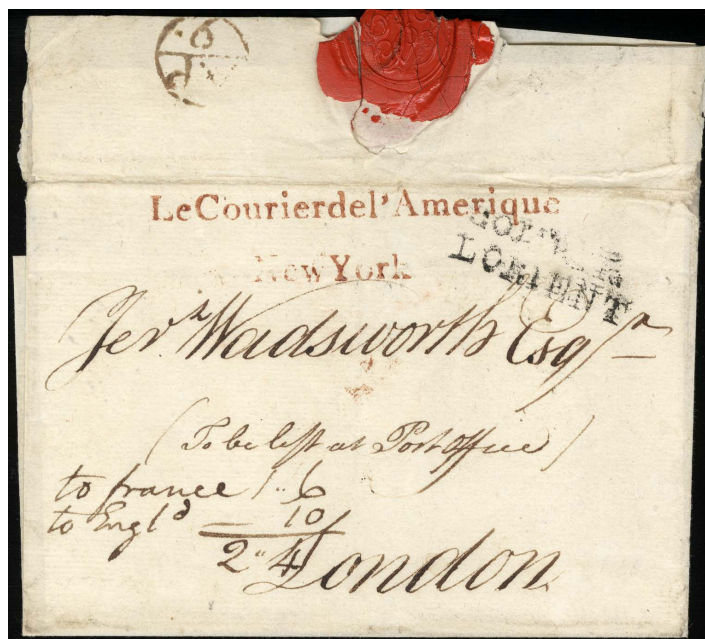 LeCourierdel'Amerique
New York
COL.
LORIENT
Jerʰ Wadsworth Esqʳ
(To be left at Post office)
to france 1..6
to Englᵈ — 10
2 " 4
London